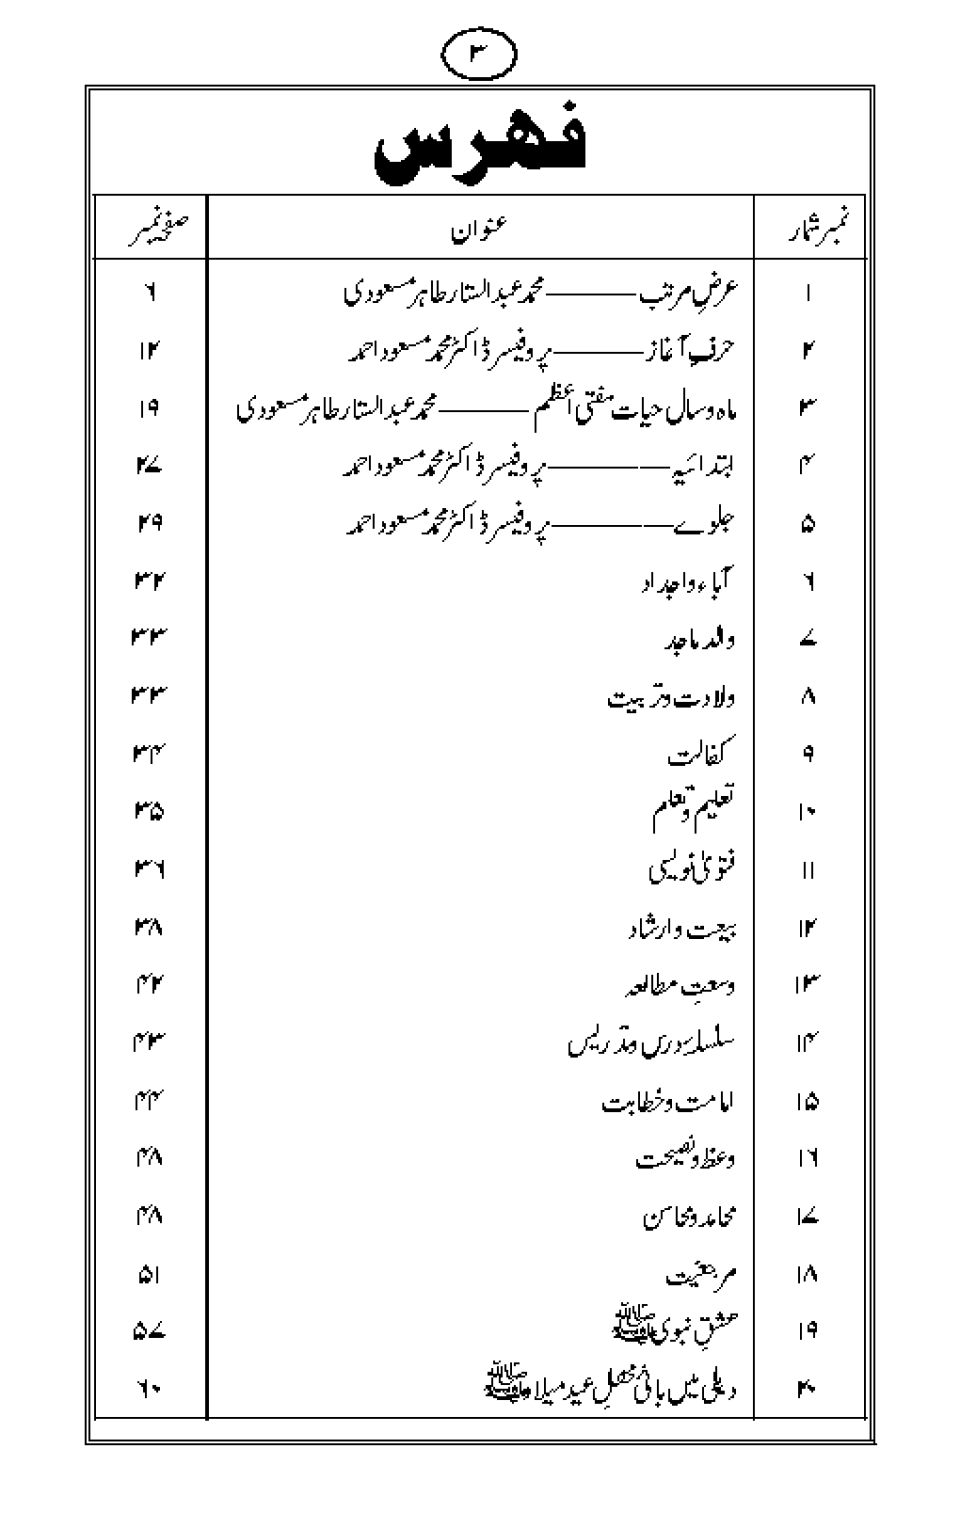 ۳
فہرس
نمبر شمار عنوان صفحہ نمبر
۱ عرضِ مرتب ——— محمد عبدالستار طاہر مسعودی ۶
۲ حرفِ آغاز ——— پروفیسر ڈاکٹر محمد مسعود احمد ۱۲
۳ ماہ و سال حیات مفتی اعظم ——— محمد عبدالستار طاہر مسعودی ۱۹
۴ ابتدائیہ ———— پروفیسر ڈاکٹر محمد مسعود احمد ۲۷
۵ جلوے ———— پروفیسر ڈاکٹر محمد مسعود احمد ۲۹
۶ آباء و اجداد ۳۲
۷ والد ماجد ۳۳
۸ ولادت و تربیت ۳۳
۹ کفالت ۳۴
۱۰ تعلیم و تعلم ۳۵
۱۱ فتویٰ نویسی ۳۶
۱۲ بیعت و ارشاد ۳۸
۱۳ وسعتِ مطالعہ ۴۲
۱۴ سلسلہ درس و تدریس ۴۳
۱۵ امامت و خطابت ۴۴
۱۶ وعظ و نصیحت ۴۸
۱۷ محامد و محاسن ۴۸
۱۸ مرجعیت ۵۱
۱۹ عشقِ نبوی ﷺ ۵۷
۲۰ دہلی میں بانیٔ محفلِ عید میلاد ﷺ ۶۰